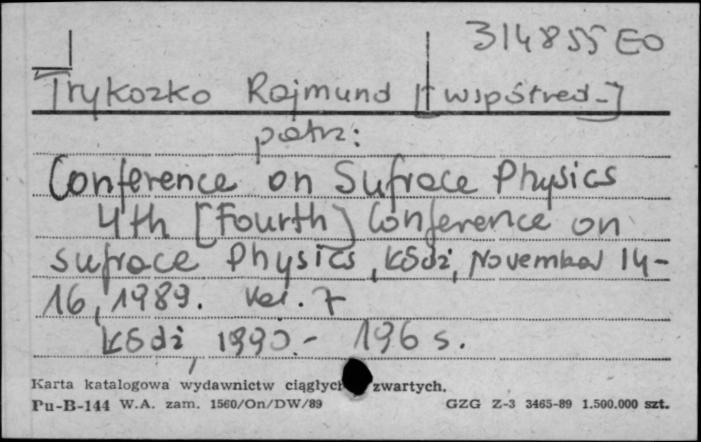 314855 EO
Trykozko Rajmund [współred.]
patrz:
Conference on Sufrace Physics
4th [Fourth] Conference on
sufrace Physics, Łódź, November 14-
16, 1989. Vol. 7
Łódź, 1990.- 196 s.
Karta katalogowa wydawnictw ciągłych zwartych.
Pu-B-144 W.A. zam. 1560/On/DW/89 GZG Z-3 3465-89 1.500.000 szt.